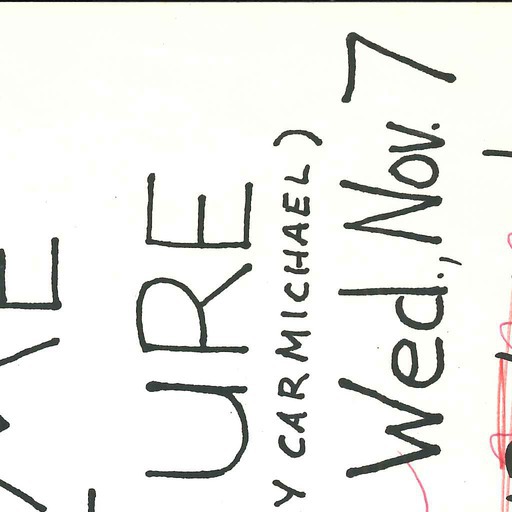 ME
URE
Y CARMICHAEL)
Wed., Nov. 7